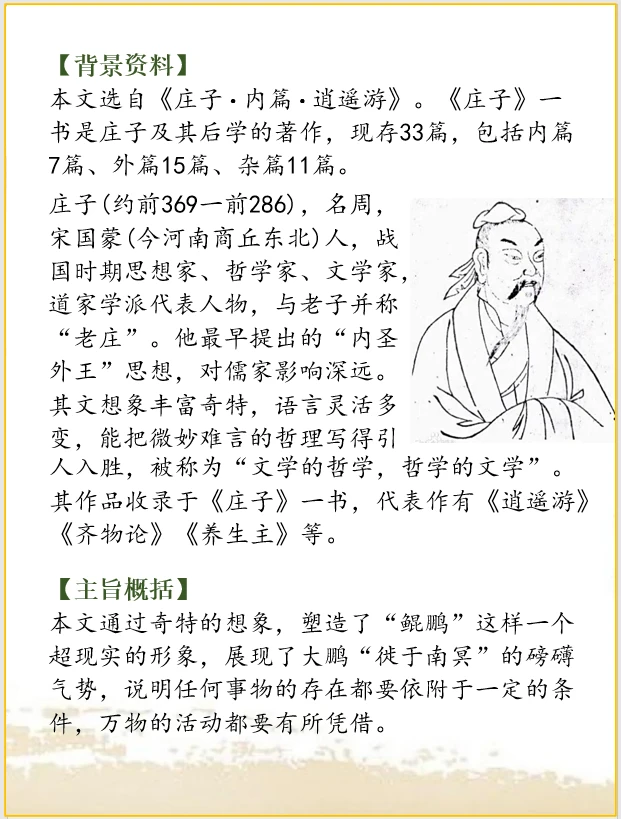 【背景资料】
本文选自《庄子·内篇·逍遥游》。《庄子》一
书是庄子及其后学的著作，现存33篇，包括内篇
7篇、外篇15篇、杂篇11篇。
庄子(约前369一前286)，名周，
宋国蒙(今河南商丘东北)人，战
国时期思想家、哲学家、文学家，
道家学派代表人物，与老子并称
“老庄”。他最早提出的“内圣
外王”思想，对儒家影响深远。
其文想象丰富奇特，语言灵活多
变，能把微妙难言的哲理写得引
人入胜，被称为“文学的哲学，哲学的文学”。
其作品收录于《庄子》一书，代表作有《逍遥游》
《齐物论》《养生主》等。
【主旨概括】
本文通过奇特的想象，塑造了“鲲鹏”这样一个
超现实的形象，展现了大鹏“徙于南冥”的磅礴
气势，说明任何事物的存在都要依附于一定的条
件，万物的活动都要有所凭借。